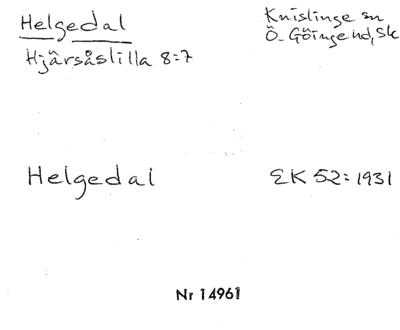 Helgedal
Hjärsåslilla 8:7
Knislinge sn
Ö. Göinge hd, Sk
Helgedal
EK 52:1931
Nr 14961